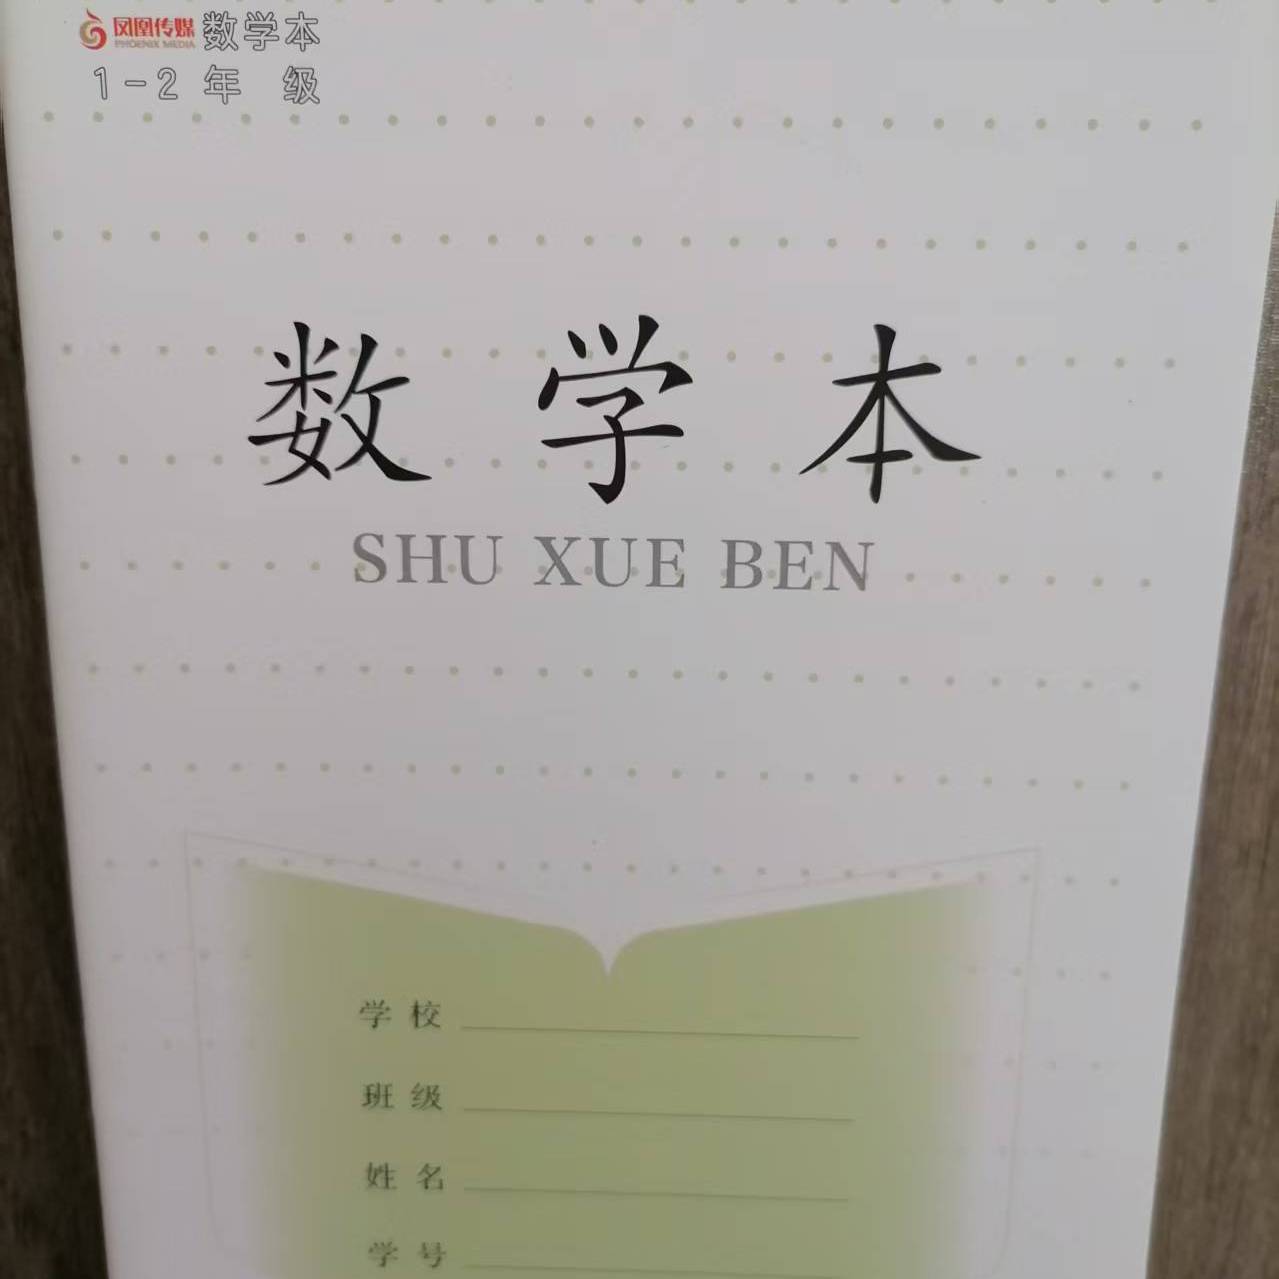 凤凰传媒 数学本
PHOENIX MEDIA
1-2 年 级
数 学 本
SHU XUE BEN
学 校
班 级
姓 名
学 号